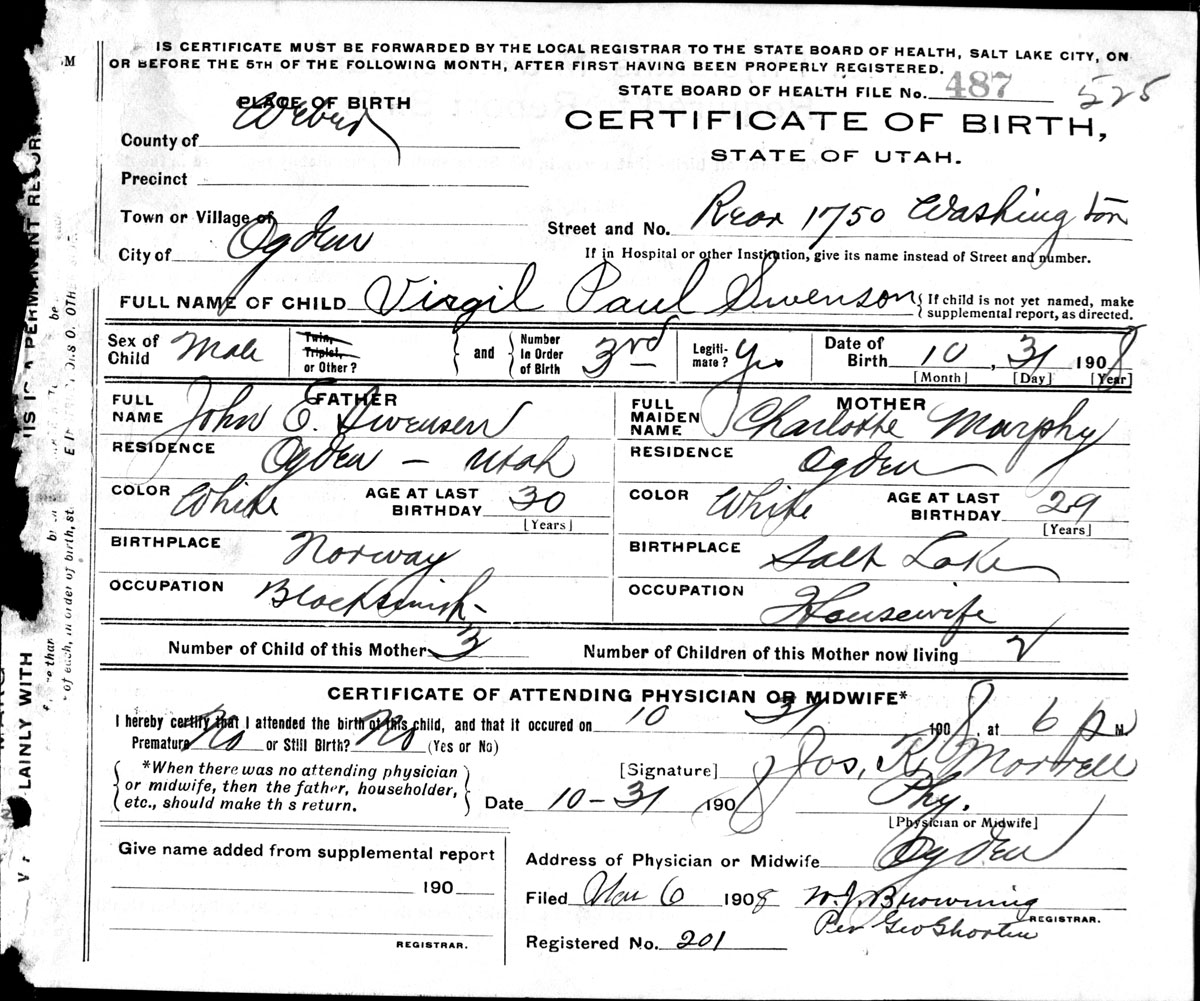 IS CERTIFICATE MUST BE FORWARDED BY THE LOCAL REGISTRAR TO THE STATE BOARD OF HEALTH, SALT LAKE CITY, ON
OR BEFORE THE 5TH OF THE FOLLOWING MONTH, AFTER FIRST HAVING BEEN PROPERLY REGISTERED.
STATE BOARD OF HEALTH FILE No. 487 525
PLACE OF BIRTH
CERTIFICATE OF BIRTH,
STATE OF UTAH.
County of Weber
Precinct
Town or Village of
Street and No. Rear 1750 Washington
City of Ogden
If in Hospital or other Institution, give its name instead of Street and number.
FULL NAME OF CHILD Virgil Paul Swenson { If child is not yet named, make
supplemental report, as directed.
Sex of Child Male
Twin, Triplet, or Other?
and
Number In Order of Birth 3rd
Legiti- mate? Yes
Date of Birth 10, 31 1908
[Month] [Day] [Year]
FATHER
FULL NAME John E. Swensen
MOTHER
FULL MAIDEN NAME Charlotte Murphy
RESIDENCE Ogden - Utah
RESIDENCE Ogden
COLOR White AGE AT LAST BIRTHDAY 30 [Years]
COLOR White AGE AT LAST BIRTHDAY 29 [Years]
BIRTHPLACE Norway
BIRTHPLACE Salt Lake
OCCUPATION Blacksmith
OCCUPATION Housewife
Number of Child of this Mother 3 Number of Children of this Mother now living 2
CERTIFICATE OF ATTENDING PHYSICIAN OR MIDWIFE*
I hereby certify that I attended the birth of this child, and that it occured on 10 31 1908, at 6 P M.
Premature No or Still Birth? No (Yes or No)
*When there was no attending physician
or midwife, then the father, householder,
etc., should make th s return.
[Signature] Jos. R. Morrell
Date 10-31 1908 Phy.
[Physician or Midwife]
Give name added from supplemental report
190
REGISTRAR.
Address of Physician or Midwife Ogden
Filed Nov 6 1908 W. J. Browning
REGISTRAR.
Per Geo
Registered No. 201
IS IS A PERMANENT RECOR
LAINLY WITH
of each, in order of birth, st